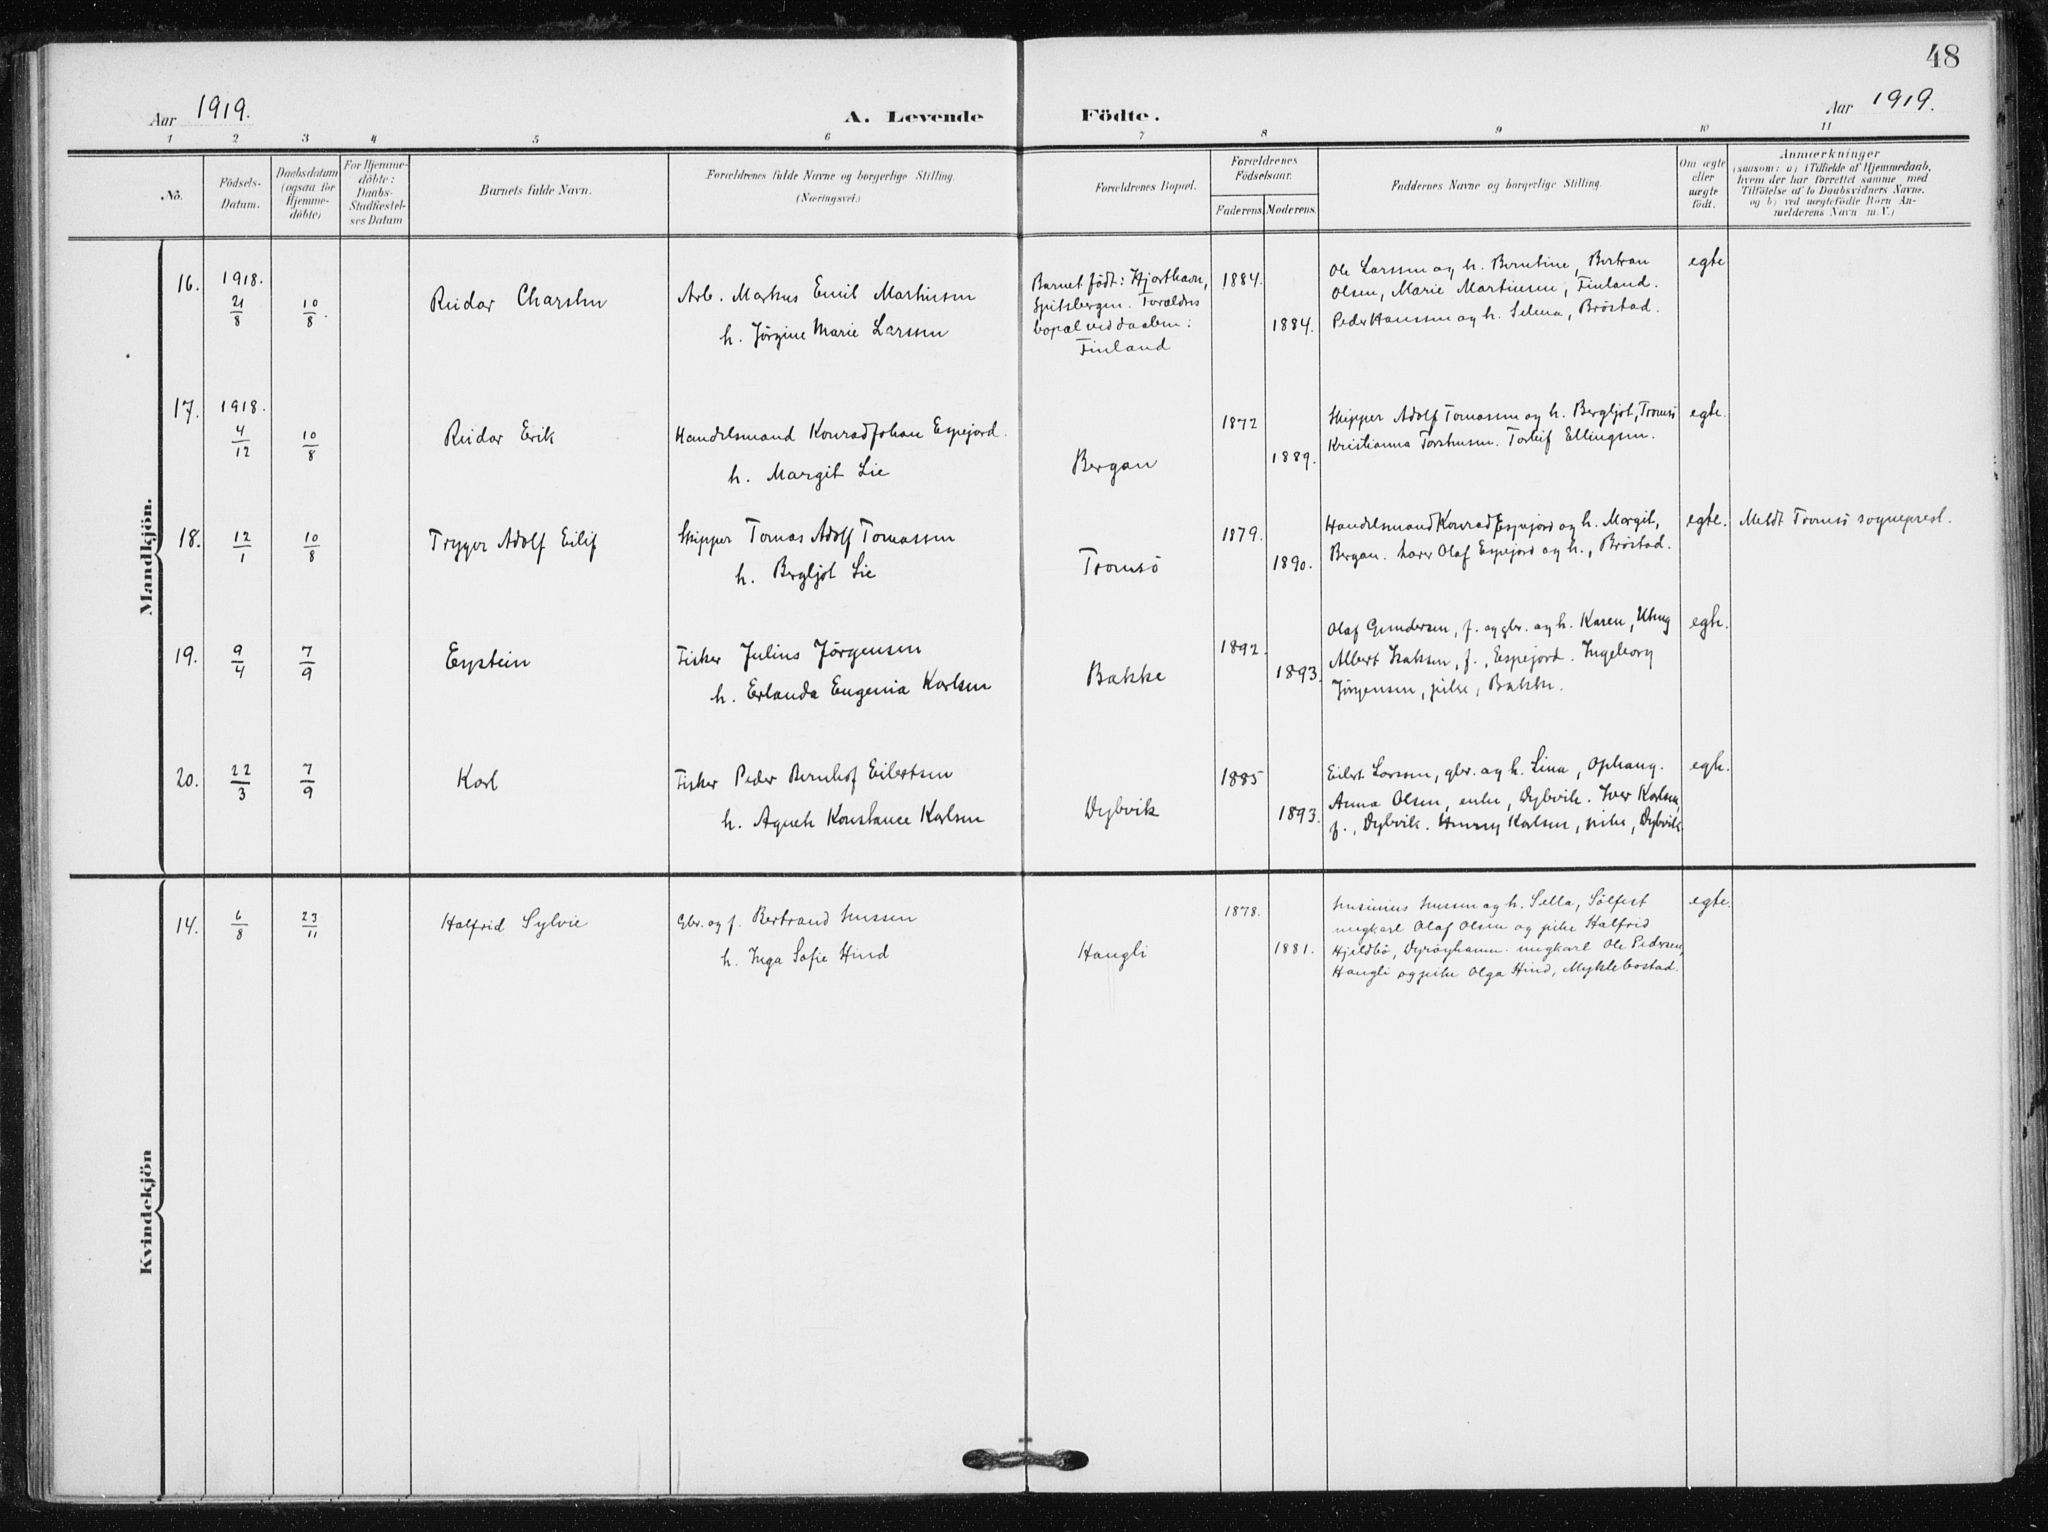 48
Aar 1919.
A. Levende Födte.
Aar 1919.
1 2 3 4 5 6 7 8 9 10 11
No.
Födsels-
Datum.
Daabsdatum
(ogsaa for
Hjemme-
döbte)
For Hjemme-
döbte:
Daabs-
Stadfæstel-
ses Datum
Barnets fulde Navn.
Forældrenes fulde Navne og borgerlige Stilling.
(Næringsvei.)
Forældrenes Bopæl.
Forældrenes
Födselsaar.
Faderens. Moderens.
Faddernes Navne og borgerlige Stilling.
Om ægte
eller
uægte
födt.
Anmærkninger
(saasom: a) i Tilfælde af Hjemmedaab,
hvem der har forrettet samme med
Tilföielse af to Daabsvidners Navne,
og b) ved uægtefödte Börn An-
melderens Navn m. V.)
Mandkjön.
16. 1918. 21/8 10/8.
Reidar
Arb. Markus Emil Martinsen
h. Jørgine Marie Larssen
Barnet født: Hjorthavn,
Spitsbergen. Forældres
bopæl ved daaben:
Finland
1884.
1884.
Ole Larssen og h. Berntine, Bertran
Olsen, Marie Martinsen, Finland.
Peder Hanssen og h. Selma, Brøstad.
egte
17. 1918. 4/12 10/8
Reidar Erik
Handelsmand Konrad Johan Espejord.
h. Margit Lie
Bergan
1872
1889.
Skipper Adolf Tomassen og h. Bergljot, Tromsö
Kristianna Torstensen. Torleif Ellingsen.
egte.
18. 12/1 10/8
Trygve Adolf Eilif
Skipper Tomas Adolf Tomassen
h. Bergljot Lie
Tromsö
1879.
1890.
Handelsmand Konrad Espejord og h. Margit,
Bergan. Lærer Olaf Espejord og h., Brøstad.
egte.
Meldt Tromsö sogneprest.
19. 9/4 7/9
Eystein
Fisker Julius Jørgensen
h. Erlanda Eugenia Karlsen
Bakke
1892.
1893.
Olaf Gundersen, f. og gbr. og h. Karen,
Albert Isaksen, f., Espejord. Ingeborg
Jørgensen, pike, Bakke.
egte.
20. 22/3 7/9
Karl
Fisker Peder Bernhof Eilertsen
h. Agnete Konstance Karlsen
Dybvik
1885
1893.
Eilert Larssen, gbr. og h. Lina, Ophaug.
Anna Olsen, enke, Dybvik. Iver Karlsen,
f., Dybvik. Henny Karlsen, pike, Dybvik.
egte.
Kvindekjön
14. 6/8 23/11
Halfrid Sylvie
Gbr. og f. Bertrand Jenssen
h. Inga Sofie Hind
Haugli
1878.
1881.
Jenssen og h. Sella, Sølfest
ungkarl Olaf Olsen og pike Halfrid
Hjeldbø, Dyrøyhamn. ungkarl Ole Pedersen,
Haugli og pike Olga Hind, Myklebostad.
egte.